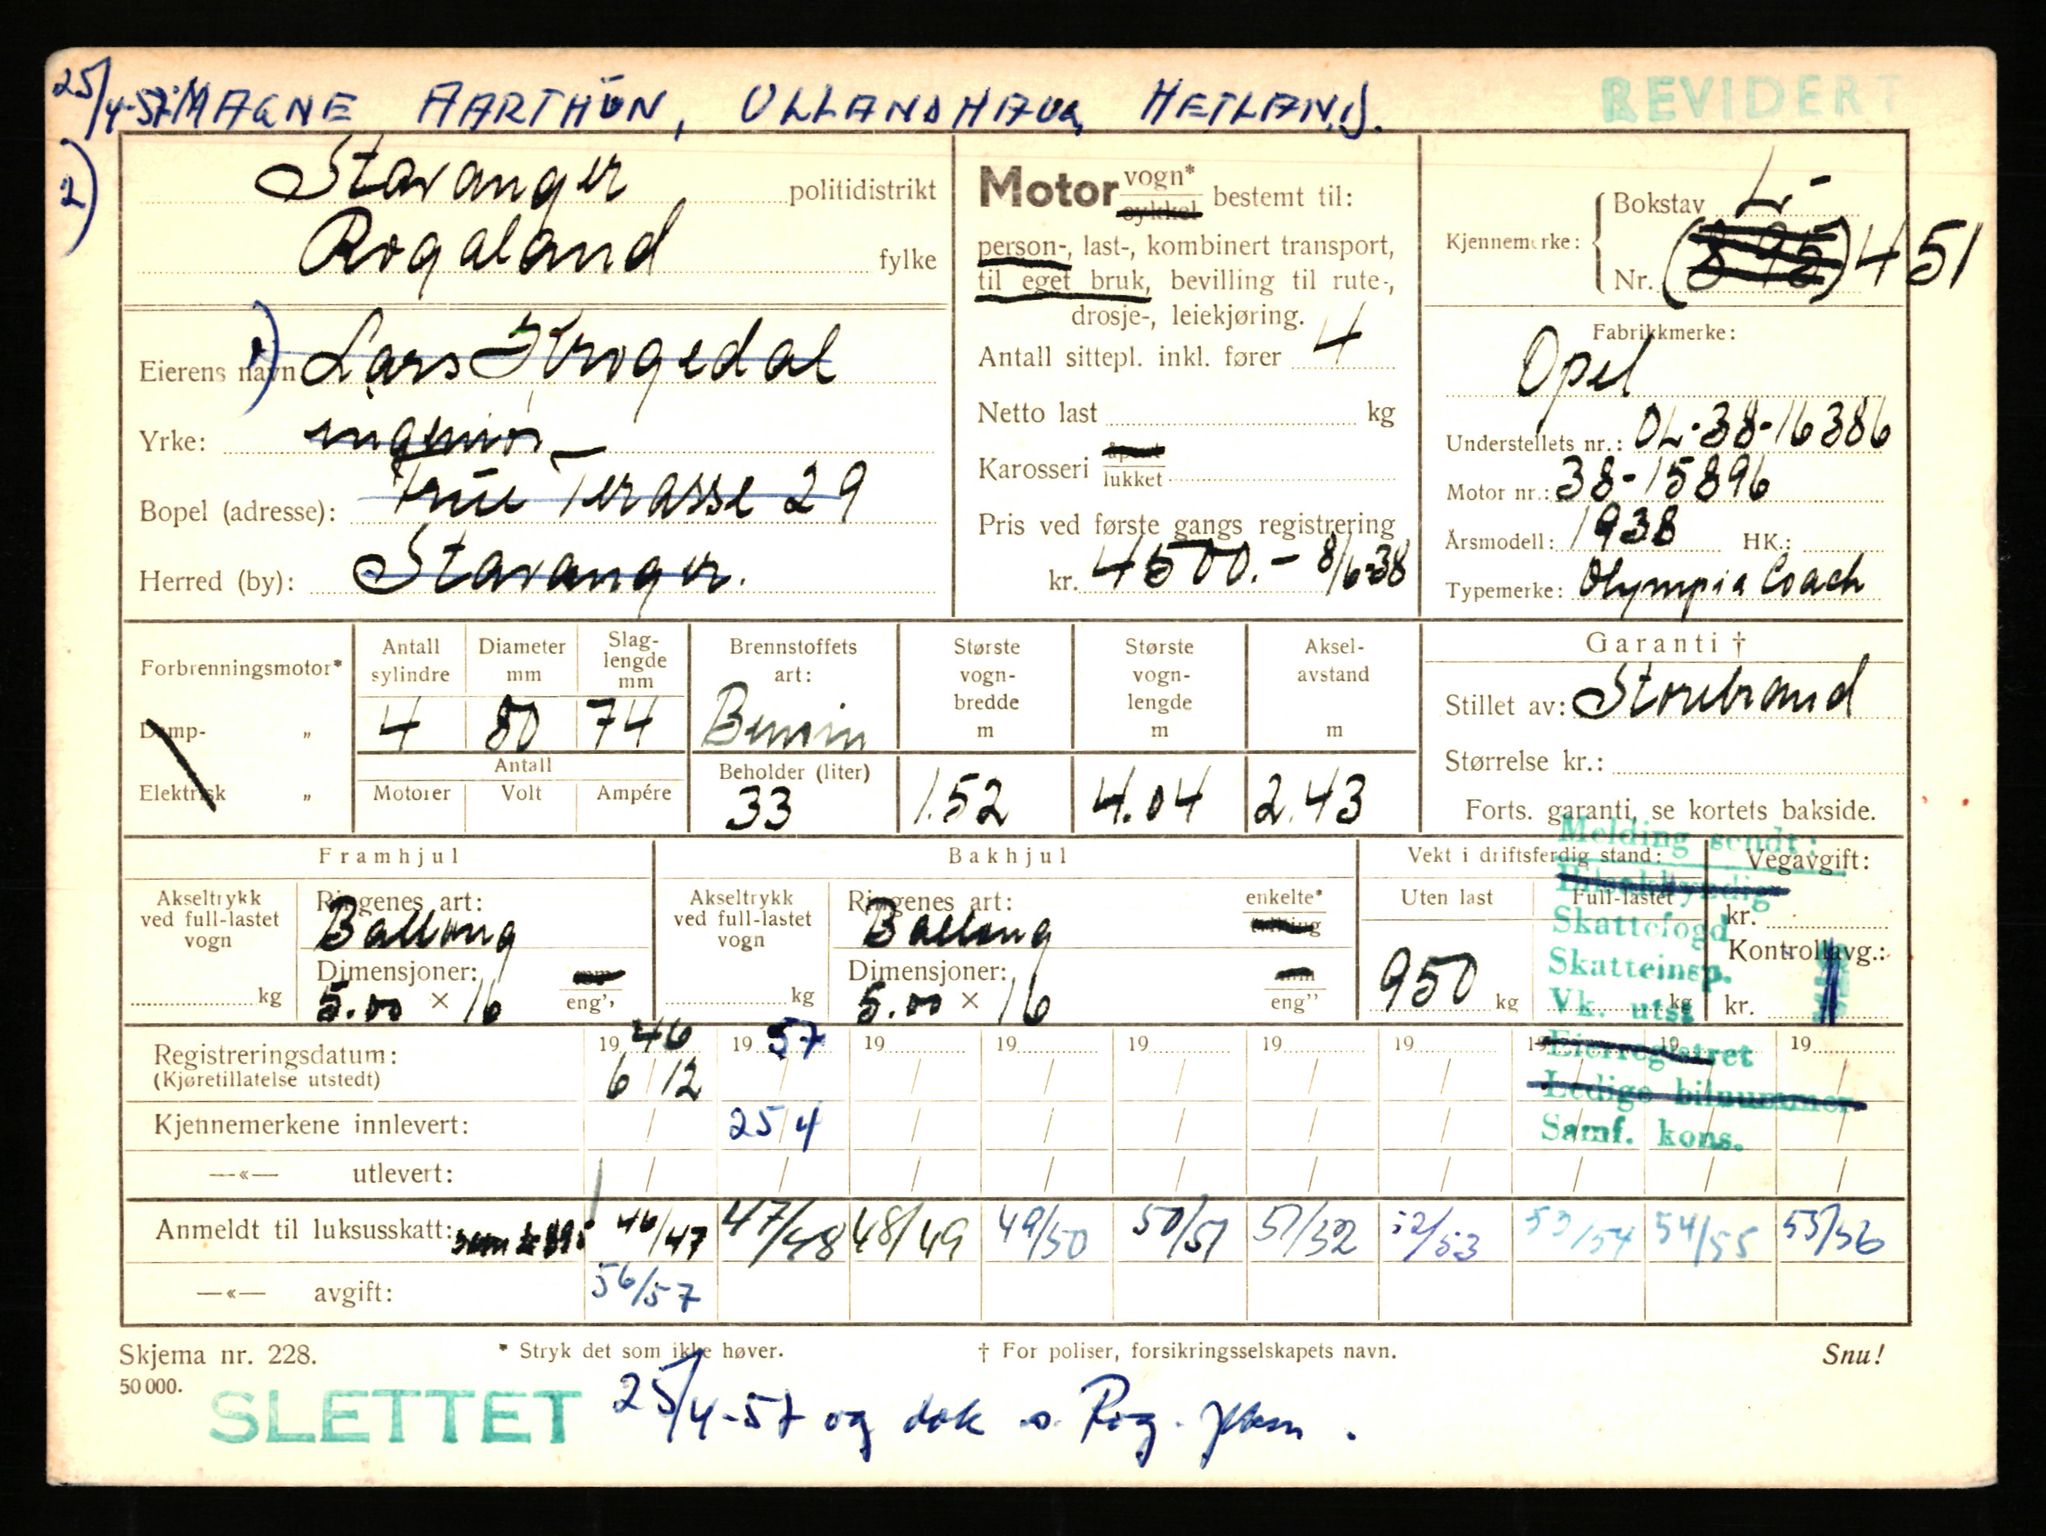 25/4-57 MAGNE AARTHUN, ULLANDHAUG, HETLAND.
REVIDERT
2)
Stavanger politidistrikt
Rogaland fylke
Motor vogn* sykkel bestemt til:
person-, last-, kombinert transport,
til eget bruk, bevilling til rute-,
drosje-, leiekjøring.
Antall sittepl. inkl. fører 4
Netto last kg
Karosseri åpent lukket
Pris ved første gangs registrering
kr. 4500.- 8/6-38
Kjennemerke: Bokstav L-
Nr. (895) 451
Eierens navn Lars Krogedal
Yrke: ingeniør
Bopel (adresse): Terasse 29
Herred (by): Stavanger.
Fabrikkmerke:
Opel
Understellets nr.: OL-38-16386
Motor nr.: 38-15896
Årsmodell: 1938 HK.:
Typemerke: Olympia Coach
Forbrenningsmotor*
Damp- „
Elektrisk „
Antall sylindre 4
Diameter mm 80
Slag-lengde mm 74
Antall
Motorer Volt Ampére
Brennstoffets art: Bensin
Beholder (liter) 33
Største vogn-bredde m 1.52
Største vogn-lengde m 4.04
Aksel-avstand m 2.43
Garanti †
Stillet av: Storebrand
Størrelse kr.:
Forts. garanti, se kortets bakside.
Framhjul
Akseltrykk ved full-lastet vogn
kg
Ringenes art:
Ballong
Dimensjoner: mm
5.00 × 16 eng''
Bakhjul
Akseltrykk ved full-lastet vogn
kg
Ringenes art: enkelte*
Ballong tvilling
Dimensjoner: mm
5.00 × 16 eng''
Vekt i driftsferdig stand:
Uten last Full-lastet
950 kg kg
Vegavgift:
kr.
Kontrollavg.:
kr.
Melding sendt:
Skattefogd
Skatteinsp.
Vk. utst
Eierregistret
Ledige bilnummer
Samf. kons.
Registreringsdatum: 19 46 19 57 19 19 19 19 19 19 19 19
(Kjøretillatelse utstedt) 6/12
Kjennemerkene innlevert: 25/4
—«— utlevert:
Anmeldt til luksusskatt: 46/47 47/48 48/49 49/50 50/51 51/52 52/53 53/54 54/55 55/56
—«— avgift: 56/57
Skjema nr. 228. * Stryk det som ikke høver. † For poliser, forsikringsselskapets navn. Snu!
50 000.
SLETTET 25/4-57 og dok